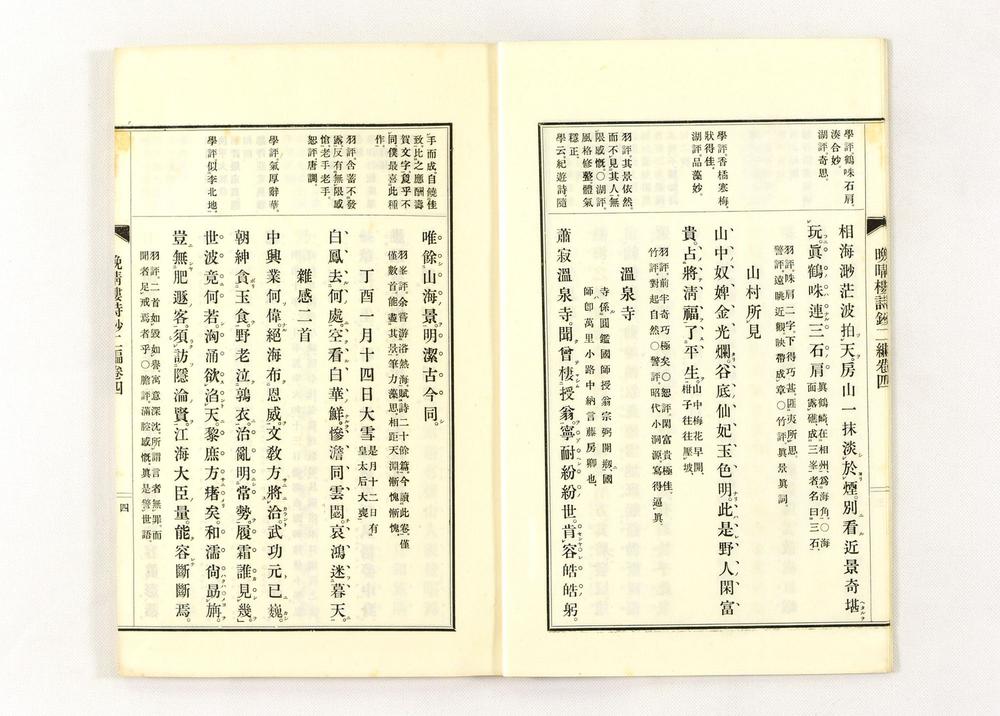 晩晴樓詩鈔二編卷四
學評鶴咮石肩
湊合妙
湖評奇思
相海渺茫波拍天。房山一抹淡於煙。別看近景奇堪
玩。眞鶴咮連三石肩。眞鶴﨑在相州爲海角〇海
面露礁成三峯者名曰三石
羽評、咮肩二字、下得巧甚匪夷所思、
警評、遠眺近觀映帶成章〇竹評、眞景眞詞、
學評香橘寒梅、
狀得佳、
湖評品藻妙、
山村所見
山中奴婢金光爛。谷底仙妃玉色明。此是野人閑富
貴。占將清福了平生。山中梅花早開、
柑子往往壓坡
羽評、前半奇巧極矣〇恕評、閑富貴極佳、
竹評、對起自然〇警評、昭代小洞源、寫得逼眞、
羽評、其景依然、
而不見其人、無
限感慨、〇湖評、
風格修整體氣
穩正、
學云紀遊詩隨
溫泉寺
寺係圓鑑國師授翁宗弼開剏、國
師卽萬里小路中納言藤房卿也、
蕭寂溫泉寺。聞曾棲授翁。寧耐紛紛世。肯容皓皓躬。
手而成、自饒佳
致比之應酬壽
賀文字、夐乎不
同僕最喜此種
作、
唯餘山海景。明潔古今同。
羽峯評、余嘗游浴熱海、賦詩二十餘篇、今讀此卷、僅
僅數首能盡其景筆力藻思、相距天淵漸愧漸愧
丁酉一月十四日大雪是月十二日有
皇太后大喪
羽評、含蓄不發
露反有無限感
愴老手老手、
恕評唐調、
白鳳去何處。空看白華鮮。慘澹同雲閟。哀鴻迷暮天。
雜感二首
學評氣厚辭華、
中興業何偉。絕海布恩威。文敎方將洽。武功元已巍。
朝紳貪玉食。野老泣鶉衣。治亂明常勢。履霜誰見幾。
學評似李北地、
世波竟何若。淘涌欲滔天。黎庶方瘏矣。和濡尙勗旃。
豈無肥遯客。須訪隱淪賢。江海大臣量。能容斷斷焉。
羽評、二首如毀如譽、寓意深沈、所謂言者無罪、而
聞者足戒焉者乎〇膽評、滿腔感慨眞是警世語、
晩晴樓詩鈔二編卷四
四